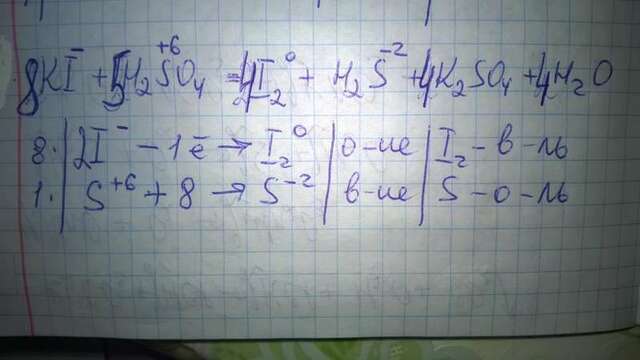 8KI⁻ + 5H₂S⁺⁶O₄ = 4I₂⁰ + H₂S⁻² + 4K₂SO₄ + 4H₂O
8. | 2I⁻ - 1ē → I₂⁰ | о-ие | I₂ - в-ль
1. | S⁺⁶ + 8 → S⁻² | в-ие | S - о-ль